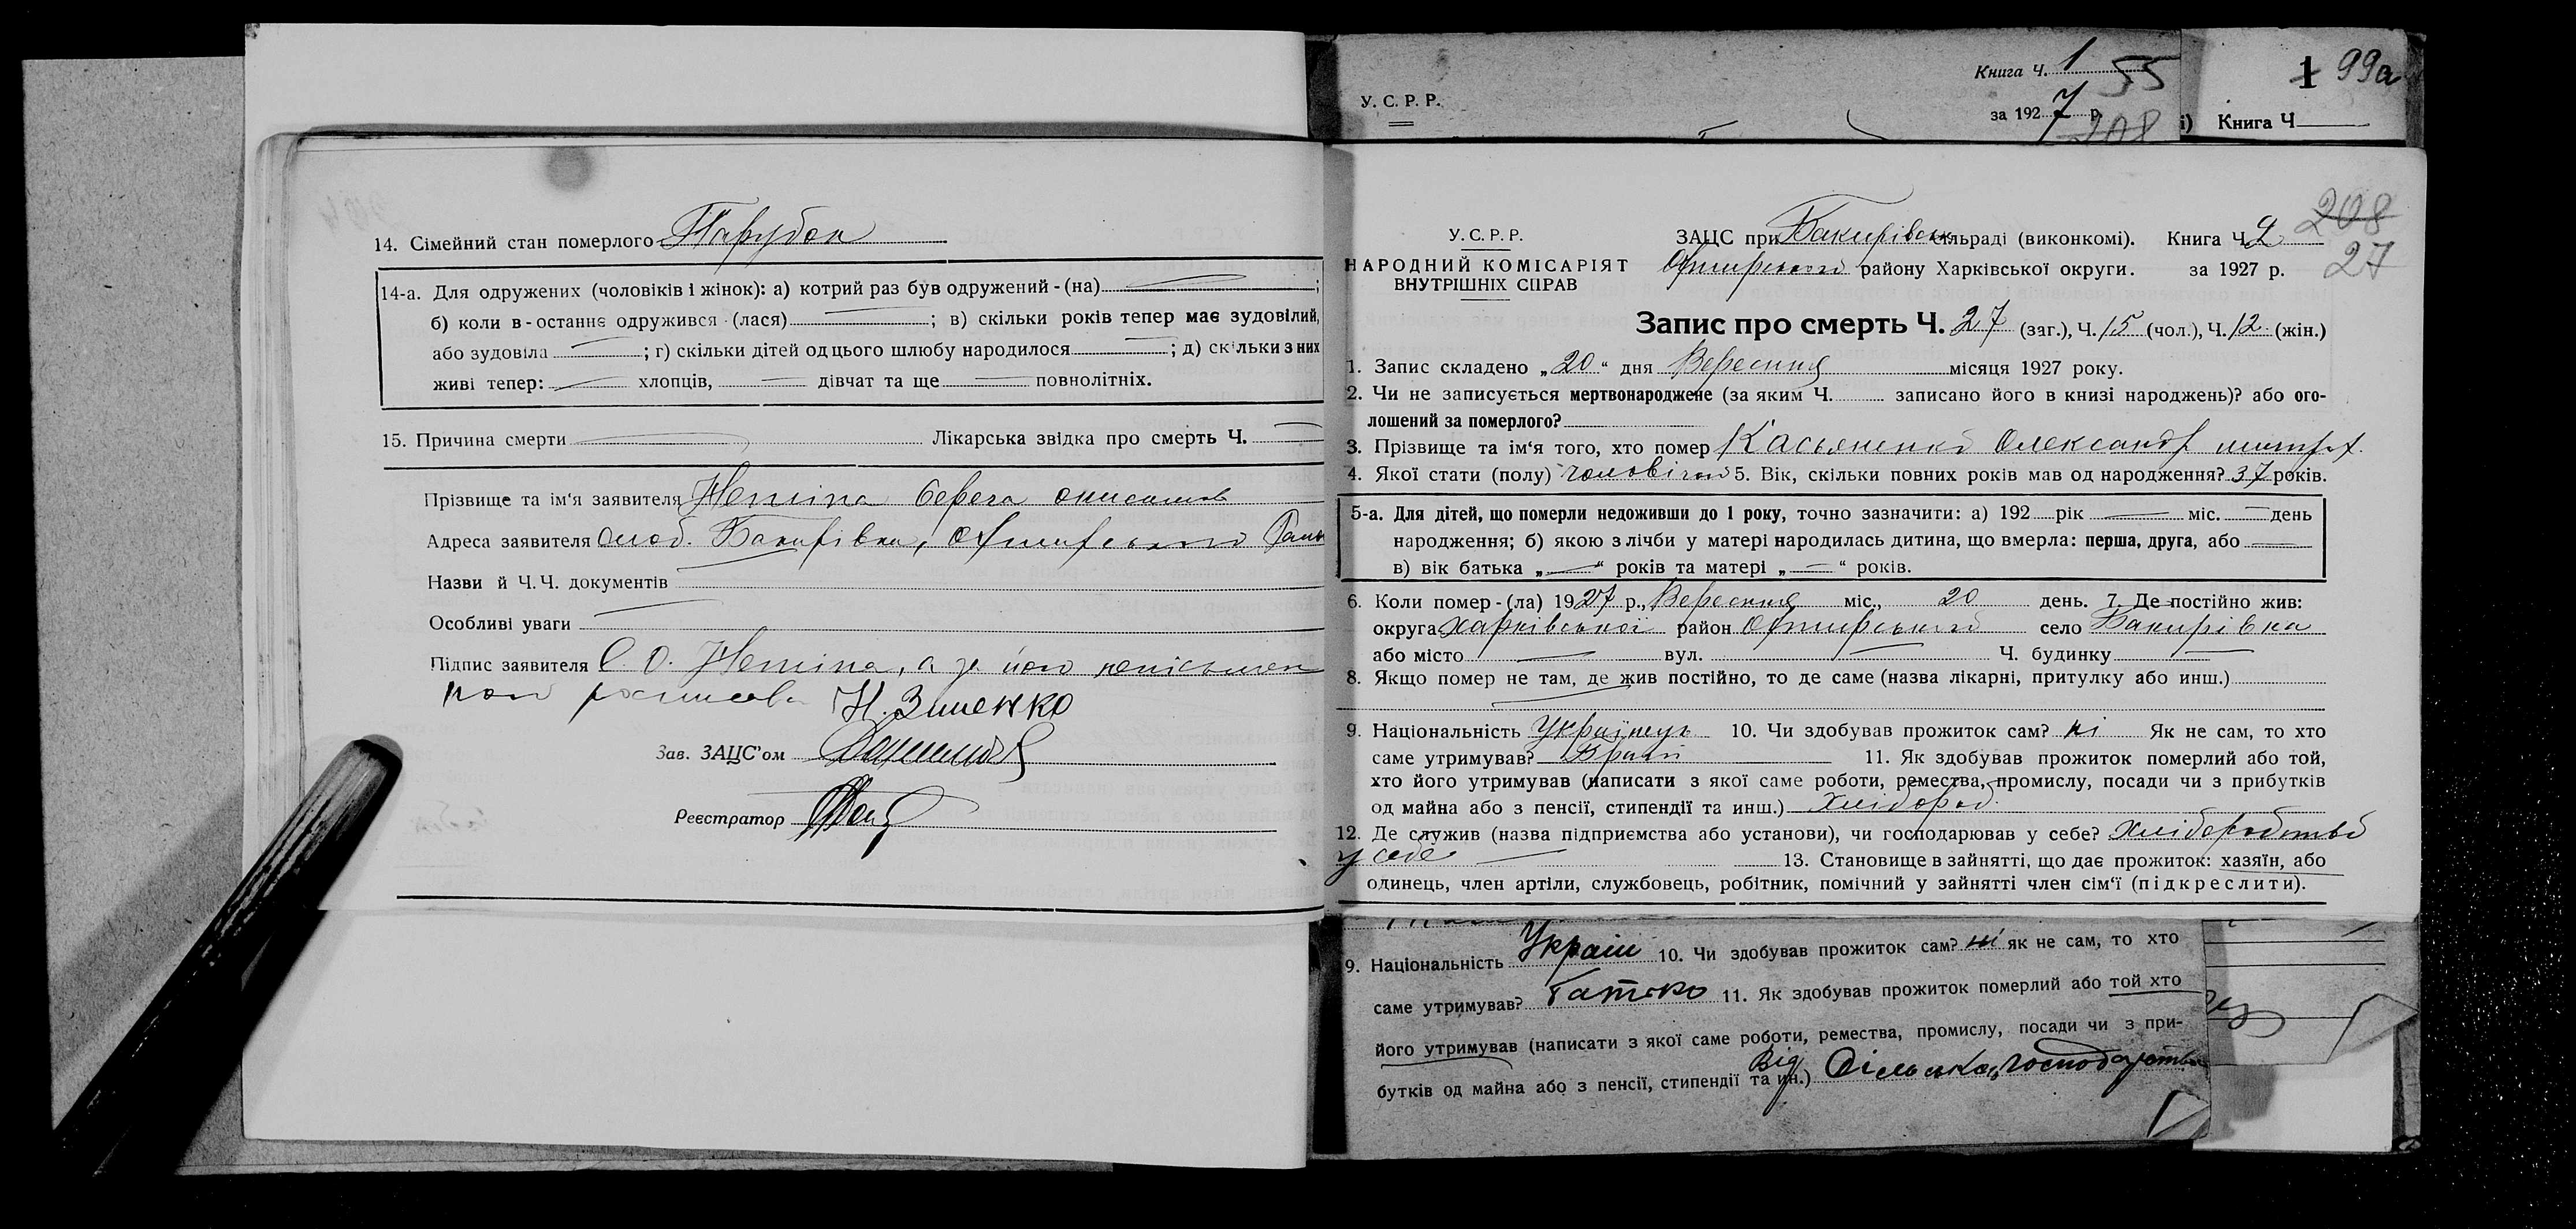 14. Сімейний стан померлого Парубок
14-а. Для одружених (чоловіків і жінок): а) котрий раз був одружений-(на) — ;
б) коли в-останнє одружився-(лася) — ; в) скільки років тепер має зудовілий,
або зудовіла — ; г) скільки дітей од цього шлюбу народилося — ; д) скільки з них
живі тепер: — хлопців, — дівчат та ще — повнолітніх.
15. Причина смерти — Лікарська звідка про смерть Ч. —
Прізвище та ім'я заявителя
Адреса заявителя слоб. Бакирівка, Охтирського
Назви й Ч.Ч. документів
Особливі уваги —
Підпис заявителя а за його
Н. Зименко
Зав. ЗАЦС'ом
Реєстратор
Книга Ч. 1 55
У. С. Р. Р.
за 1927 р. 208
1 99а
і) Книга Ч
208
27
У. С. Р. Р.
НАРОДНИЙ КОМІСАРІЯТ
ВНУТРІШНІХ СПРАВ
ЗАЦС при Бакирівськ сільраді (виконкомі). Книга Ч. 2
Охтирського району Харківської округи. за 1927 р.
Запис про смерть Ч. 27 (заг.), Ч. 15 (чол.), Ч. 12 (жін.)
1. Запис складено „20" дня Вересння місяця 1927 року.
2. Чи не записується мертвонароджене (за яким Ч. записано його в книзі народжень)? або ого-
лошений за померлого?
3. Прізвище та ім'я того, хто помер Касьяненко Олександр
4. Якої стати (полу) чоловічої 5. Вік, скільки повних років мав од народження? 37 років.
5-а. Для дітей, що померли недоживши до 1 року, точно зазначити: а) 192 рік — міс. — день
народження; б) якою з лічби у матері народилась дитина, що вмерла: перша, друга, або —
в) вік батька „—" років та матері „—" років.
6. Коли помер-(ла) 1927 р., Вересння міс., 20 день. 7. Де постійно жив:
округа Харківської район Охтирський село Бакирівка
або місто — вул. — Ч. будинку —
8. Якщо помер не там, де жив постійно, то де саме (назва лікарні, притулку або инш.)
9. Національність Українець 10. Чи здобував прожиток сам? ні Як не сам, то хто
саме утримував? Брат 11. Як здобував прожиток померлий або той,
хто його утримував (написати з якої саме роботи, ремества, промислу, посади чи з прибутків
од майна або з пенсії, стипендії та инш.) Хлібороб.
12. Де служив (назва підприємства або установи), чи господарював у себе? Хліборобство
у себе — 13. Становище в зайнятті, що дає прожиток: хазяїн, або
одинець, член артіли, службовець, робітник, помічний у зайнятті член сім'ї (підкреслити).
9. Національність Украін 10. Чи здобував прожиток сам? ні як не сам, то хто
саме утримував? Батько 11. Як здобував прожиток померлий або той хто
його утримував (написати з якої саме роботи, ремества, промислу, посади чи з при-
бутків од майна або з пенсії, стипендії та ин.) Від Сільська господарства